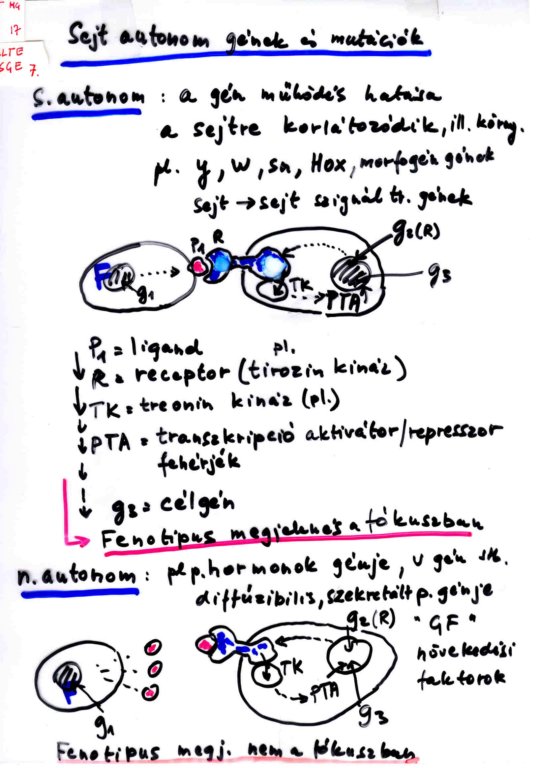 17
LTE
SGE 7.
Sejt autonom gének és mutációk
s. autonom : a gén működés hatása
a sejtre korlátozódik, ill. körny.
pl. y, w, sn, Hox, morfogén gének
sejt → sejt szignál tr. gének
P1 R g2(R)
F g1 TK PTA g3
P1 = ligand
R = receptor (pl. tirozin kináz)
TK = treonin kináz (pl.)
PTA = transzkripció aktivátor/represszor
fehérjék
g3 = célgén
Fenotipus megjelenés a fókuszban
n. autonom : pl. p. hormonok génje, v gén stb.
diffúzibilis, szekretált p. génje
g2(R) "GF"
TK növekedési
F PTA faktorok
g1 g3
Fenotipus megj. nem a fókuszban